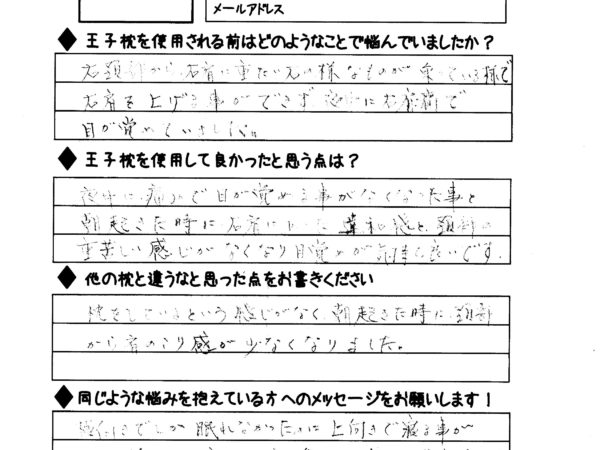 メールアドレス
◆ 王子枕を使用される前はどのようなことで悩んでいましたか?
右頚部から右肩に重たい石の様なものが乗っている様で
右肩を上げる事ができず 夜中に右肩痛で
目が覚めていました。
◆ 王子枕を使用して良かったと思う点は?
夜中に痛みで目が覚める事がなくなった事と
朝起きた時に右肩にあった違和感と、頚部の
重苦しい感じがなくなり目覚めが気持ち良いです。
◆ 他の枕と違うなと思った点をお書きください
枕をしているという感じがなく、朝起きた時に頚部
から肩のこり感が少なくなりました。
◆ 同じような悩みを抱えている方へのメッセージをお願いします!
横向きでしか眠れなかったのに上向きで寝る事が